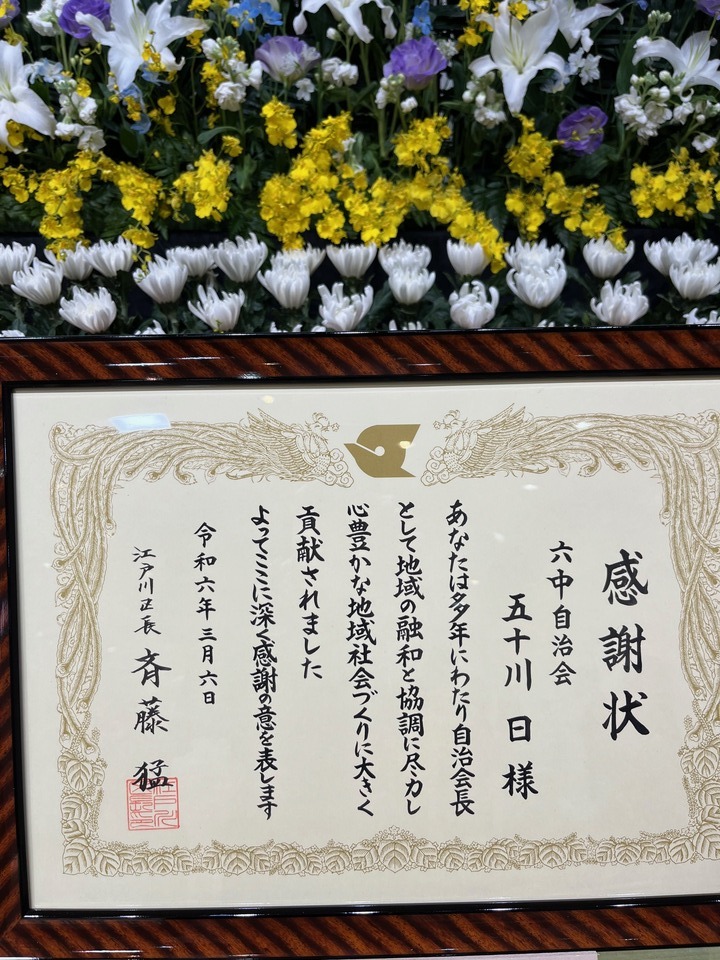 感謝状
六中自治会
五十川 日 様
あなたは多年にわたり自治会長
として地域の融和と協調に尽力し
心豊かな地域社会づくりに大きく
貢献されました
よってここに深く感謝の意を表します
令和六年三月六日
江戸川区長 斉藤 猛